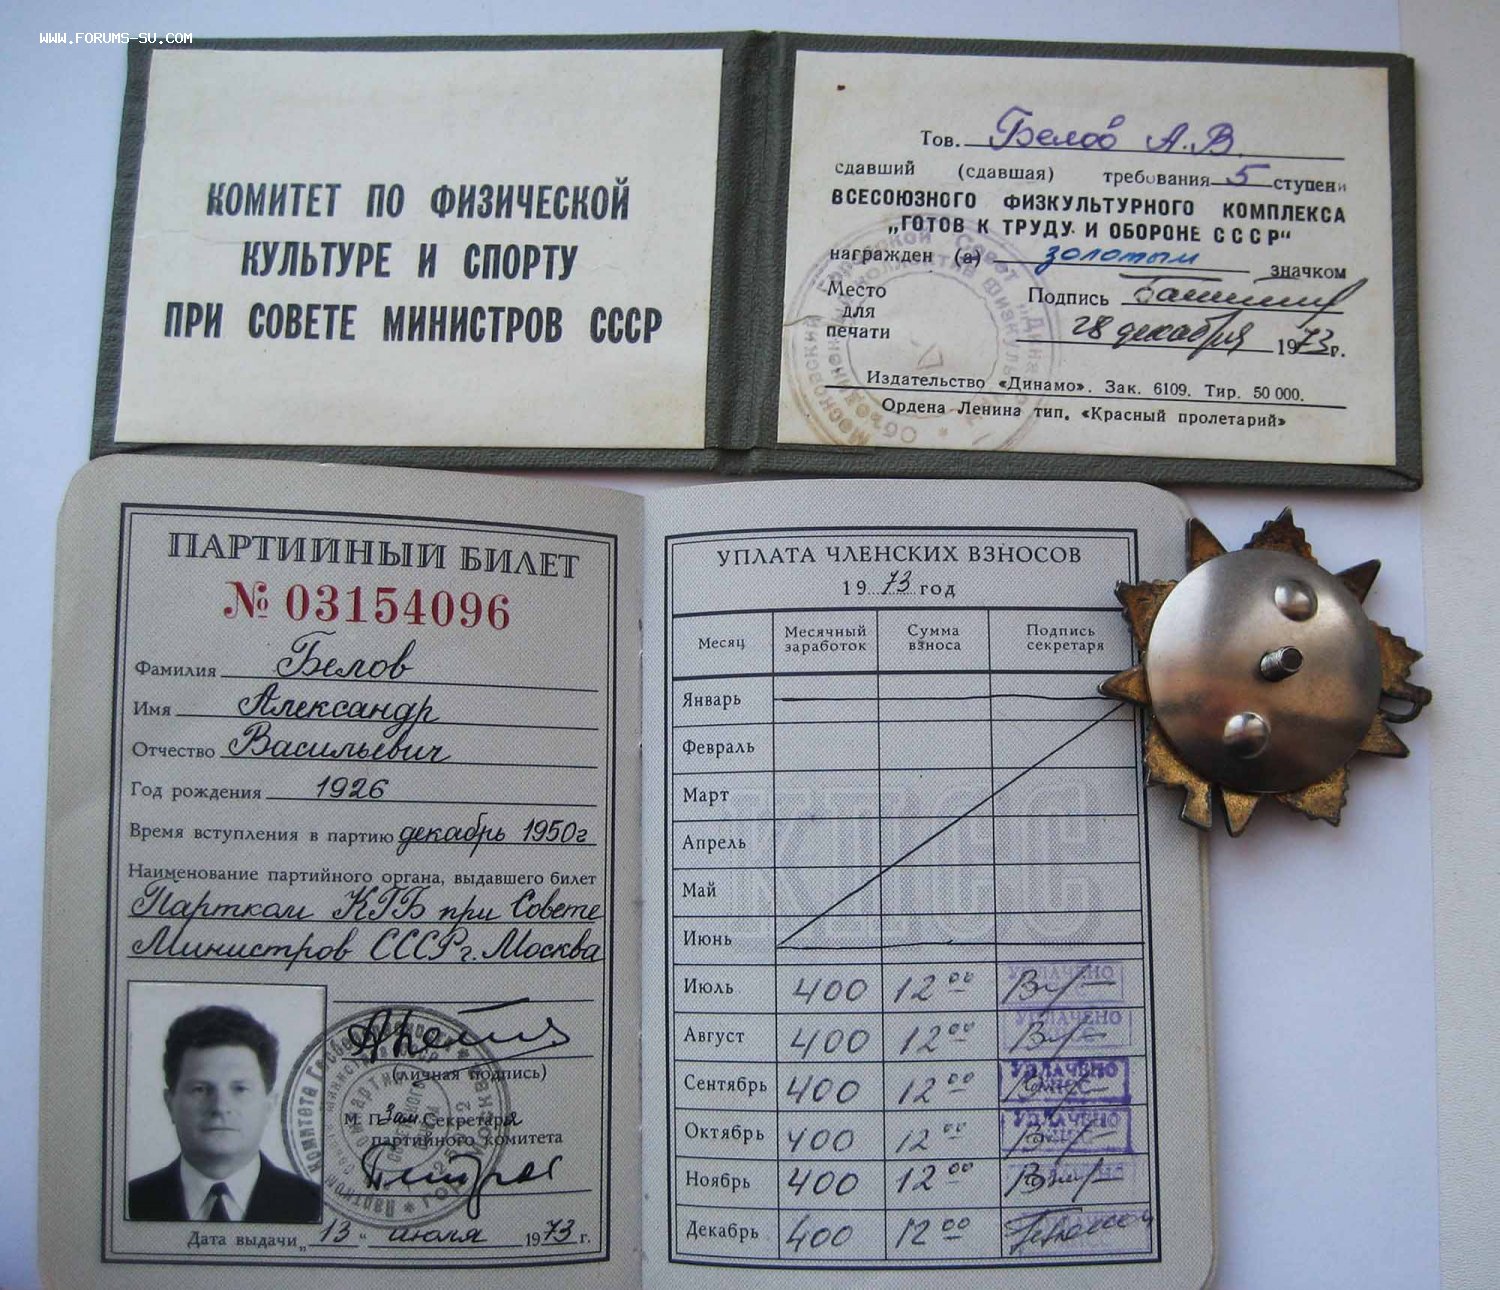 WWW.FORUMS-SU.COM
КОМИТЕТ ПО ФИЗИЧЕСКОЙ
КУЛЬТУРЕ И СПОРТУ
ПРИ СОВЕТЕ МИНИСТРОВ СССР
Тов. Белов А.В.
сдавший (сдавшая) требования 5 ступени
ВСЕСОЮЗНОГО ФИЗКУЛЬТУРНОГО КОМПЛЕКСА
„ГОТОВ К ТРУДУ И ОБОРОНЕ СССР“
награжден (а) золотым значком
Место
для
печати
Подпись
28 декабря 1973 г.
Издательство «Динамо». Зак. 6109. Тир. 50 000.
Ордена Ленина тип. «Красный пролетарий»
ПАРТИЙНЫЙ БИЛЕТ
№ 03154096
Фамилия Белов
Имя Александр
Отчество Васильевич
Год рождения 1926
Время вступления в партию декабрь 1950г
Наименование партийного органа, выдавшего билет
Партком КГБ при Совете
Министров СССР г. Москва
(личная подпись)
М. П. Зам. Секретаря
партийного комитета
Дата выдачи „13“ июля 1973 г.
УПЛАТА ЧЛЕНСКИХ ВЗНОСОВ
1973 год
Месяц Месячный заработок Сумма взноса Подпись секретаря
Январь
Февраль
Март
Апрель
Май
Июнь
КПСС
Июль 400 12 00 УПЛАЧЕНО
Август 400 12 00 УПЛАЧЕНО
Сентябрь 400 12 00 УПЛАЧЕНО
Октябрь 400 12 00 УПЛАЧЕНО
Ноябрь 400 12 00
Декабрь 400 12 00